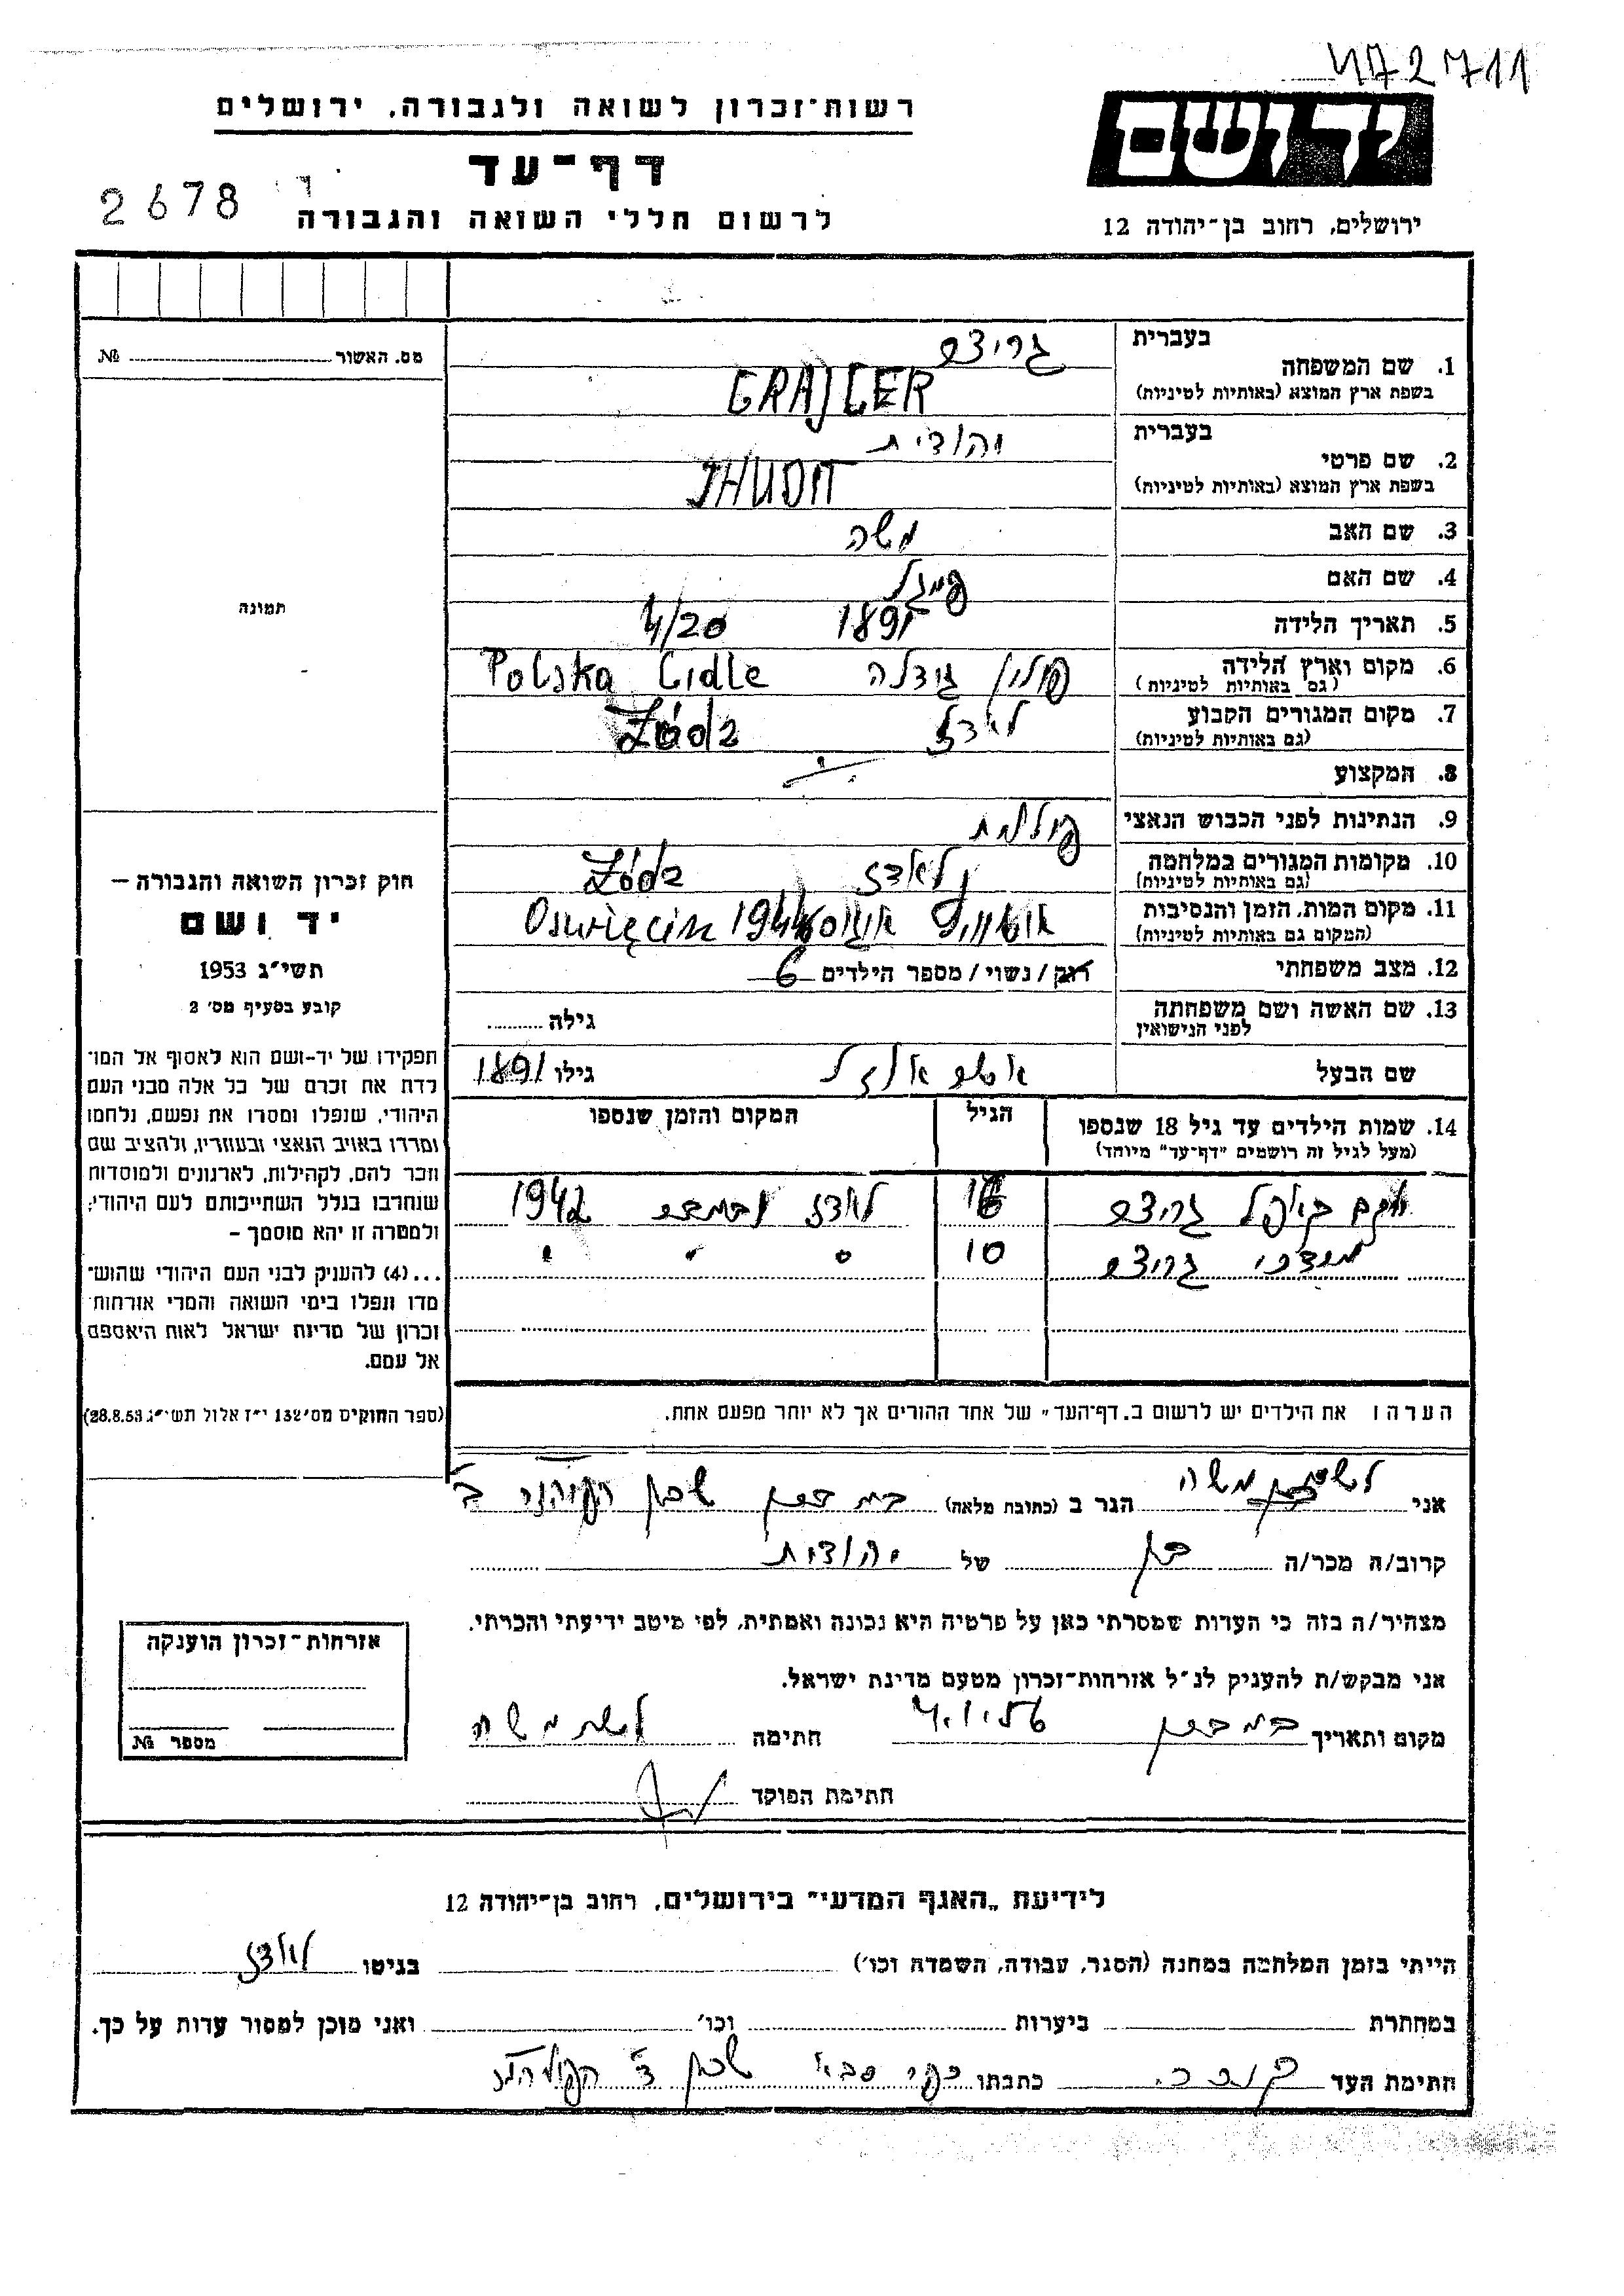 472711
יד ושם
רשות־זכרון לשואה ולגבורה, ירושלים
דף־עד
2678
לרשום חללי השואה והגבורה
ירושלים, רחוב בן־יהודה 12
מס. האשור № 
תמונה
חוק זכרון השואה והגבורה –
יד ושם
תשי״ג 1953
קובע בסעיף מס׳ 2
תפקידו של יד־ושם הוא לאסוף אל המו־
לדת את זכרם של כל אלה מבני העם
היהודי, שנפלו ומסרו את נפשם, נלחמו
ומרדו באויב הנאצי ובעוזריו, ולהציב שם
וזכר להם, לקהילות, לארגונים ולמוסדות
שנחרבו בגלל השתייכותם לעם היהודי;
ולמטרה זו יהא מוסמך –
...(4) להעניק לבני העם היהודי שהוש־
מדו ונפלו בימי השואה והמרי אזרחות־
זכרון של מדינת ישראל לאות היאספם
אל עמם.
(ספר החוקים מס׳ 132 י״ז אלול תשי״ג 28.8.53)
בעברית
1. שם המשפחה
בשפת ארץ המוצא (באותיות לטיניות) GRAJCER
בעברית יהודית
2. שם פרטי
בשפת ארץ המוצא (באותיות לטיניות) JHUDIT
3. שם האב משה
4. שם האם
5. תאריך הלידה 1891 4/20
6. מקום וארץ הלידה פולין גידלה Polska Gidle
(גם באותיות לטיניות)
7. מקום המגורים הקבוע לודז Łódz
(גם באותיות לטיניות)
8. המקצוע
9. הנתינות לפני הכבוש הנאצי פולנית
10. מקומות המגורים במלחמה לודז Łódz
(גם באותיות לטיניות)
11. מקום המות, הזמן והנסיבות אוגוסט 1944 Oswięcim
(המקום גם באותיות לטיניות)
12. מצב משפחתי רוק / נשוי / מספר הילדים 6
13. שם האשה ושם משפחתה גילה
לפני הנישואין
שם הבעל גילו 1891
14. שמות הילדים עד גיל 18 שנספו הגיל המקום והזמן שנספו
(מעל לגיל זה רושמים ״דף־עד״ מיוחד)
גרייצר 16 לודז 1942
מרדכי גרייצר 10 " " "
הערה: את הילדים יש לרשום ב„דף־העד״ של אחד ההורים אך לא יותר מפעם אחת.
אני משה הגר ב (כתובת מלאה) שכון
קרוב/ה מכר/ה בן של יהודית
מצהיר/ה בזה כי העדות שמסרתי כאן על פרטיה היא נכונה ואמתית, לפי מיטב ידיעתי והכרתי.
אני מבקש/ת להעניק לנ״ל אזרחות־זכרון מטעם מדינת ישראל.
מקום ותאריך 4.1.56 חתימה משה
חתימת הפוקד
אזרחות־זכרון הוענקה
מספר №
לידיעת „האגף המדעי״ בירושלים, רחוב בן־יהודה 12
הייתי בזמן המלחמה במחנה (הסגר, עבודה, השמדה וכו׳) בגיטו לודז
במחתרת ביערות וכו׳ ואני מוכן למסור עדות על כך.
חתימת העד כתבתו כפר סבא שכון